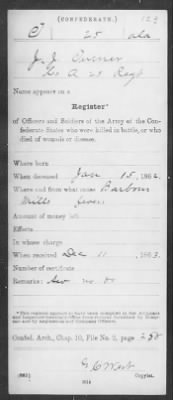 (CONFEDERATE.) 123
C 25 Ala
J. J. Turner
Co A 25 Regt
Name appears on a
Register*
of Officers and Soldiers of the Army of the Con-
federate States who were killed in battle, or who
died of wounds or disease.
Where born
When deceased Jan 15, 1862
Where and from what cause Barbour
Mills fever
Amount of money left
Effects
In whose charge
When received Dec 11, 1863.
Number of certificate
Remarks: no.
*This register appears to have been compiled in the
Confed. Arch., Chap. 10, File No. 2, page 258
Copyist.